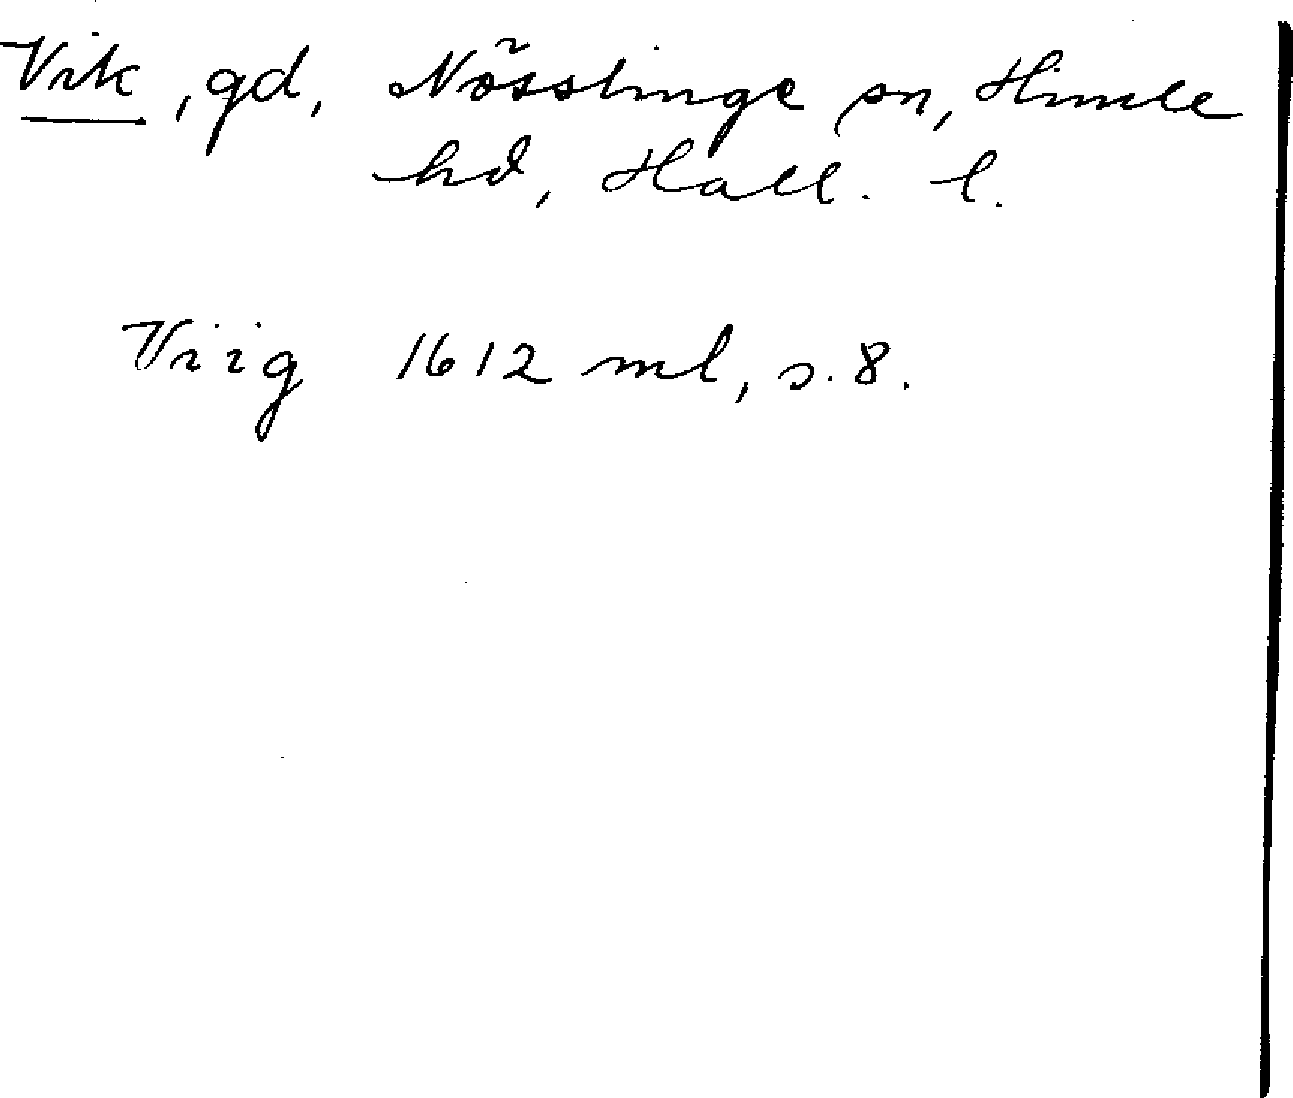 Vik, gd, Nösslinge sn, Himle
hd, Hall. l.
Viig 1612 ml, s. 8.